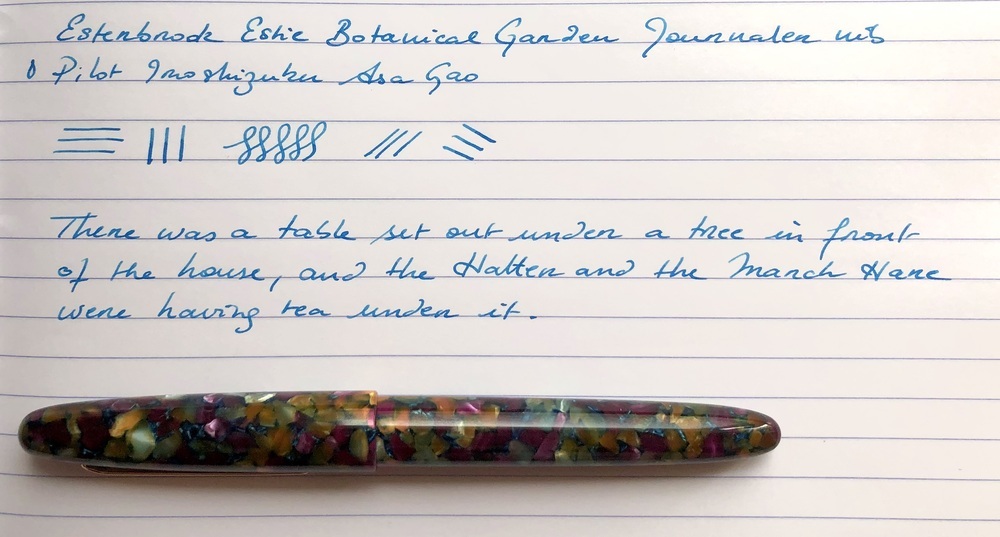 Esterbrook Estie Botanical Garden Journaler nib
& Pilot Iroshizuku Asa Gao
There was a table set out under a tree in front
of the house, and the Hatter and the March Hare
were having tea under it.